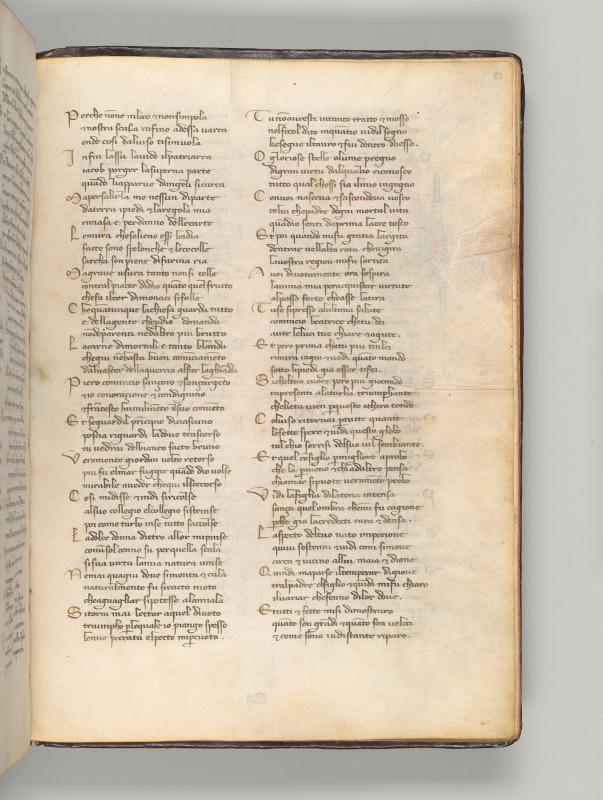 80
Perche nōne inloco e nonsimpola
e nostra scala infino adessa uarca
onde cosi daluiso tisinuola
Infin lassu lauide ilpatriarca
iacob porger lasuperna parte
quādo liapparue dangeli sicarca
Mapersalirla mo nessun diparte
daterra ipiedi e laregola mia
rimasa e perdanno dellecarte
Lemura chesolieno esser badia
facte sono spelonche e lecocolle
saccha son piene difarina ria
Magraue usura tanto nonsi tolle
contral piacer didio quato quel fructo
chefa ilcor dimonaci sifolle
Chequantunque lachiesa guarda tutto
e dellagente chepdio domanda
nōdeparenti nedaltro piu brutto
Lacarne dimortali e tanto blanda
chegiu nōbasta buon cominciamēto
dalnascer dellaquercia alfar laghiāda
Piero comincio sançoro e sançargēto
e io conoratione e condigiuno
e francesco humilmēte ilsuo conuēto
Et seguardi il pricipio diciascuno
poscia riguardi ladoue trascorso
tu uedrai delbianco facto bruno
Veramente giordan uolto retorso
piu fu elmar fuggir quādo dio uolse
mirabile aueder chequi ilsoccorso
Cosi midisse e indi siricolse
alsuo collegio elcollegio sistrinse
poi come turbo inse tutto saccolse
Ladolce donna dietro allor mipinse
conūsol cenno su perquella scala
sisua uirtu lamia natura uinse
Nemai quagiu doue simonta e cala
naturalmente fu siracto moto
cheaguagliar sipotesse alamiala
Sitorni mai lector aquel diuoto
triumpho plequale io piango spesso
lemie peccata elpecto mipcuoto.
Tu nōauresti intanto tratto e messo
nelfocol dito inquātio uidi lsegno
kesegue iltauro e fui dentro daesso.
O gloriose stelle olume pregno
digran uirtu dalqualio riconosco
tutto qual chessi sia ilmio ingegno
Conuoi nasceua e sascondeua uosco
colui chepadre dogni mortal uita
quādio senti daprima laere tosco
Et poi quando mifu gratia largita
dentrar nellalta rota cheuigira
lauostra region mifu sortita
A uoi diuotamente ora sospira
lanima mia peracquistar uirtute
alpasso forte cheasse latira
Tuse sipresso alultima salute
comincio beatrice chetu dei
auer leluci tue chiare e agute.
Et pero prima chetu piu tinlei
rimira ingiu e uedi quāto mondo
sotto lipiedi gia esser tefei.
Sicheltuo cuore pero piu giocondo
rapresenti alaturba triumphante
chelieta uien pquesto ethera tondo
Coluiso ritornai ptutte quante
lesette spere e uidi questo globo
tal chio sorrisi delsuo uil sembiante.
Et quel cōsiglio pmigliore aprobo
che la pmeno e chi adaltro pensa
chiamar sipuote ueramēte probo
Vidi lafiglia dilatona intensa
sança quel ombra chemi fu cagione
pche gia lacredecti rara e densa.
Laspecto deltuo nato imperione
quiui sostenni e uidi com simoue
circa e uicino allui maia e dione
Quindi maparse iltemperar digioue
tralpadre elfiglio e quindi mifu chiaro
iluariar chefanno dilor doue.
Et tutti e sette misi dimostraro
quāto son grādi e quāto son ueloci
e come sono indistante riparo.